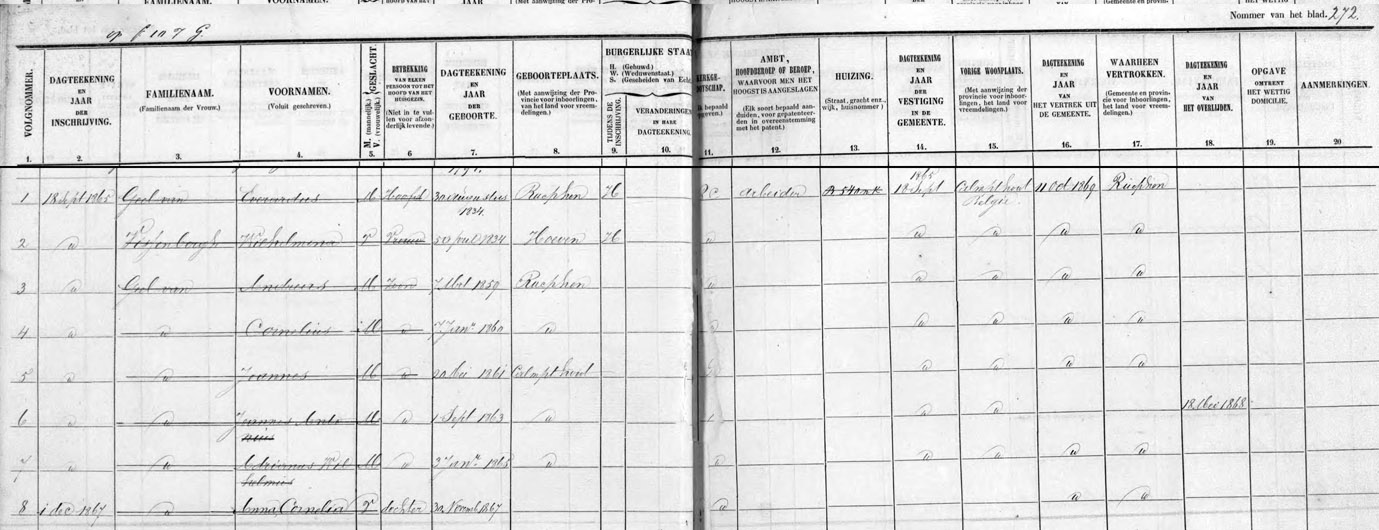 Nommer van het blad. 272.
op f 10 7 G.
VOLGNOMMER. DAGTEEKENING EN JAAR DER INSCHRIJVING. FAMILIENAAM. (Familienaam der Vrouw.) VOORNAMEN. (Voluit geschreven.) GESLACHT M. (mannelijk.) V. (vrouwelijk.) BETREKING VAN ELKEN PERSOON TOT HET HOOFD VAN HET HUISGEZIN. (Niet in te vullen voor afzonderlijk levende.) DAGTEEKENING EN JAAR DER GEBOORTE. GEBOORTEPLAATS. (Met aanwijzing der Provincie voor inboorlingen, van het land voor vreemdelingen.) BURGERLIJKE STAA H. (Gehuwd.) W. (Weduwenstaat.) S. (Gescheiden van Echt TIJDENS DE INSCHRIJVING. VERANDERINGEN IN HARE DAGTEEKENING. AMBT, HOOFDBEROEP OF BEROEP, WAARVOOR MEN HET HOOGST IS AANGESLAGEN (Elk soort bepaald aanduiden, voor gepatenteerden in overeenstemming met het patent.) HUIZING. (Straat, gracht enz., wijk, huisnommer) DAGTEEKENING EN JAAR DER VESTIGING IN DE GEMEENTE. VORIGE WOONPLAATS. (Met aanwijzing der provincie voor inboorlingen, het land voor vreemdelingen.) DAGTEEKENING EN JAAR VAN HET VERTREK UIT DE GEMEENTE. WAARHEEN VERTROKKEN. (Gemeente en provincie voor inboorlingen, het land voor vreemdelingen.) DAGTEEKENING EN JAAR VAN HET OVERLIJDEN. OPGAVE OMTRENT HET WETTIG DOMICILIE. AANMERKINGEN.
1. 2. 3. 4. 5. 6 7. 8. 9. 10. 11. 12. 13. 14. 15. 16. 17. 18. 19. 20
1 18 Sept 1865 Geel van Everardus M Hoofd 30 Augustus 1834. Rucphen H R C Arbeider 1865 18 Sept Calmpthout Belgie. 11 Oct 1869 Rucphen
2 " Wilhelmina V Vrouw 5 April 1834 Hoeven H " " " " "
3 " Geel van Andreas M Zoon 7 Mrt 1859 Rucphen " " " " "
4 " " Cornelius M " 7 Janr 1860 " " " " " "
5 " " Joannes M " 20 Mei 1861 Calmpthout " " " "
6 " " Joannes Antonius M " 1 Sept 1863 " " " 18 Mei 1868
7 " " Adrianus Wilhelmus M " 3 Janr 1865 " " " " " "
8 1 dec 1867 " Anna Cornelia V dochter 30 Novemb 1867 " " "